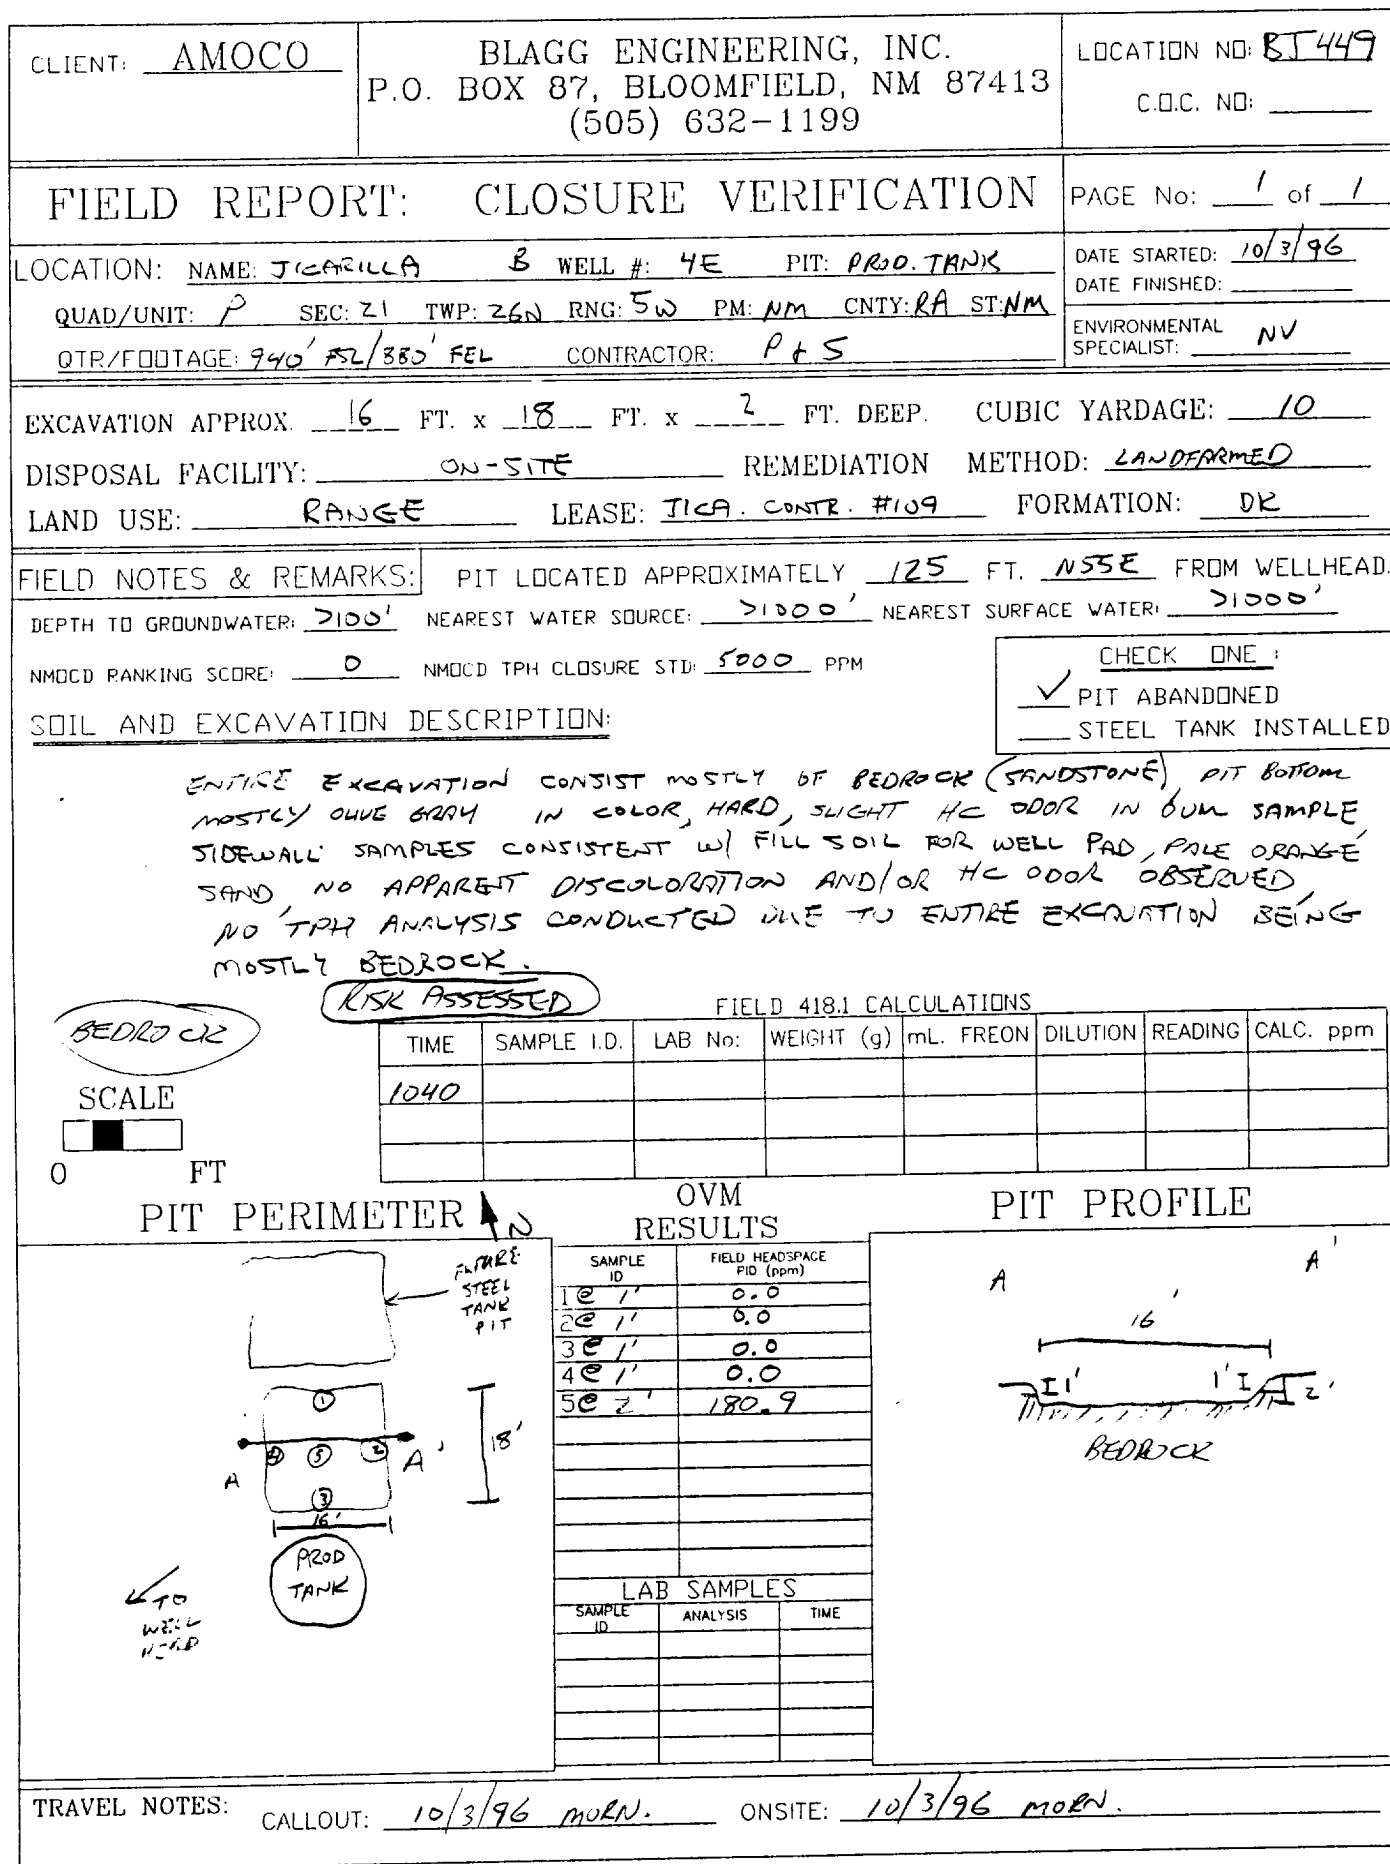 CLIENT: AMOCO
BLAGG ENGINEERING, INC.
P.O. BOX 87, BLOOMFIELD, NM 87413
(505) 632-1199
LOCATION NO: BJ449
C.O.C. NO:
FIELD REPORT: CLOSURE VERIFICATION
PAGE No: 1 of 1
LOCATION: NAME: JICARILLA B WELL #: 4E PIT: PROD. TANK
QUAD/UNIT: P SEC: 21 TWP: 26N RNG: 5W PM: NM CNTY: RA ST: NM
QTR/FOOTAGE: 940' FSL/880' FEL CONTRACTOR: P & S
DATE STARTED: 10/3/96
DATE FINISHED:
ENVIRONMENTAL
SPECIALIST: NV
EXCAVATION APPROX. 16 FT. x 18 FT. x 2 FT. DEEP. CUBIC YARDAGE: 10
DISPOSAL FACILITY: ON-SITE REMEDIATION METHOD: LANDFARMED
LAND USE: RANGE LEASE: JICA. CONTR. #109 FORMATION: DK
FIELD NOTES & REMARKS: PIT LOCATED APPROXIMATELY 125 FT. N55E FROM WELLHEAD.
DEPTH TO GROUNDWATER: >100' NEAREST WATER SOURCE: >1000' NEAREST SURFACE WATER: >1000'
NMOCD RANKING SCORE: 0 NMOCD TPH CLOSURE STD: 5000 PPM
CHECK ONE :
✓ PIT ABANDONED
STEEL TANK INSTALLED
SOIL AND EXCAVATION DESCRIPTION:
ENTIRE EXCAVATION CONSIST MOSTLY OF BEDROCK (SANDSTONE), PIT BOTTOM
MOSTLY OLIVE GRAY IN COLOR, HARD, SLIGHT HC ODOR IN OVM SAMPLE,
SIDEWALL SAMPLES CONSISTENT W/ FILL SOIL FOR WELL PAD, PALE ORANGE
SAND, NO APPARENT DISCOLORATION AND/OR HC ODOR OBSERVED,
NO TPH ANALYSIS CONDUCTED DUE TO ENTIRE EXCAVATION BEING
MOSTLY BEDROCK.
RISK ASSESSED
BEDROCK
FIELD 418.1 CALCULATIONS
TIME SAMPLE I.D. LAB No: WEIGHT (g) mL. FREON DILUTION READING CALC. ppm
1040
SCALE
0 FT
PIT PERIMETER
N
FUTURE
STEEL
TANK
PIT
1
4 5 2
3
A A'
18'
16'
PROD
TANK
TO
WELL
HEAD
OVM
RESULTS
SAMPLE ID FIELD HEADSPACE PID (ppm)
1 @ 1' 0.0
2 @ 1' 0.0
3 @ 1' 0.0
4 @ 1' 0.0
5 @ 2' 180.9
LAB SAMPLES
SAMPLE ID ANALYSIS TIME
PIT PROFILE
A A'
16'
1' 1' 2'
BEDROCK
TRAVEL NOTES: CALLOUT: 10/3/96 MORN. ONSITE: 10/3/96 MORN.